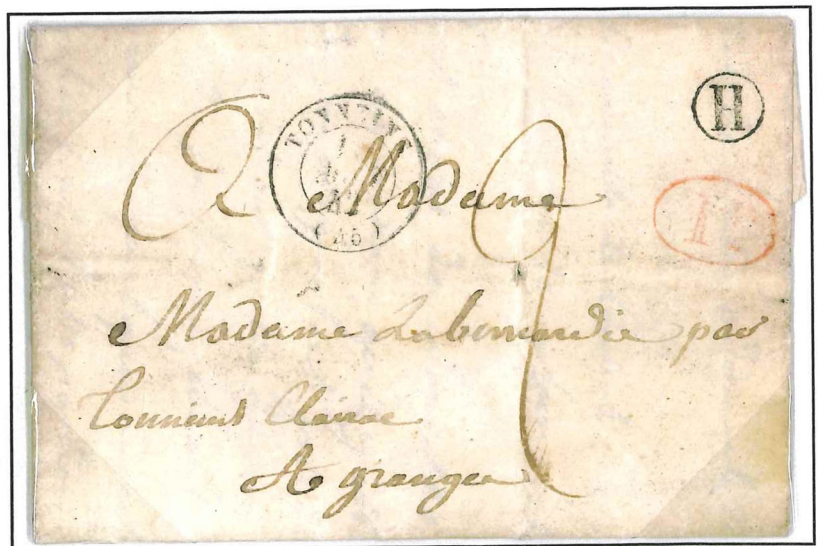 TONNEINS
1
(45)
H
2
Madame
Madame Labernardie par
Tonneins Clairac
A grange